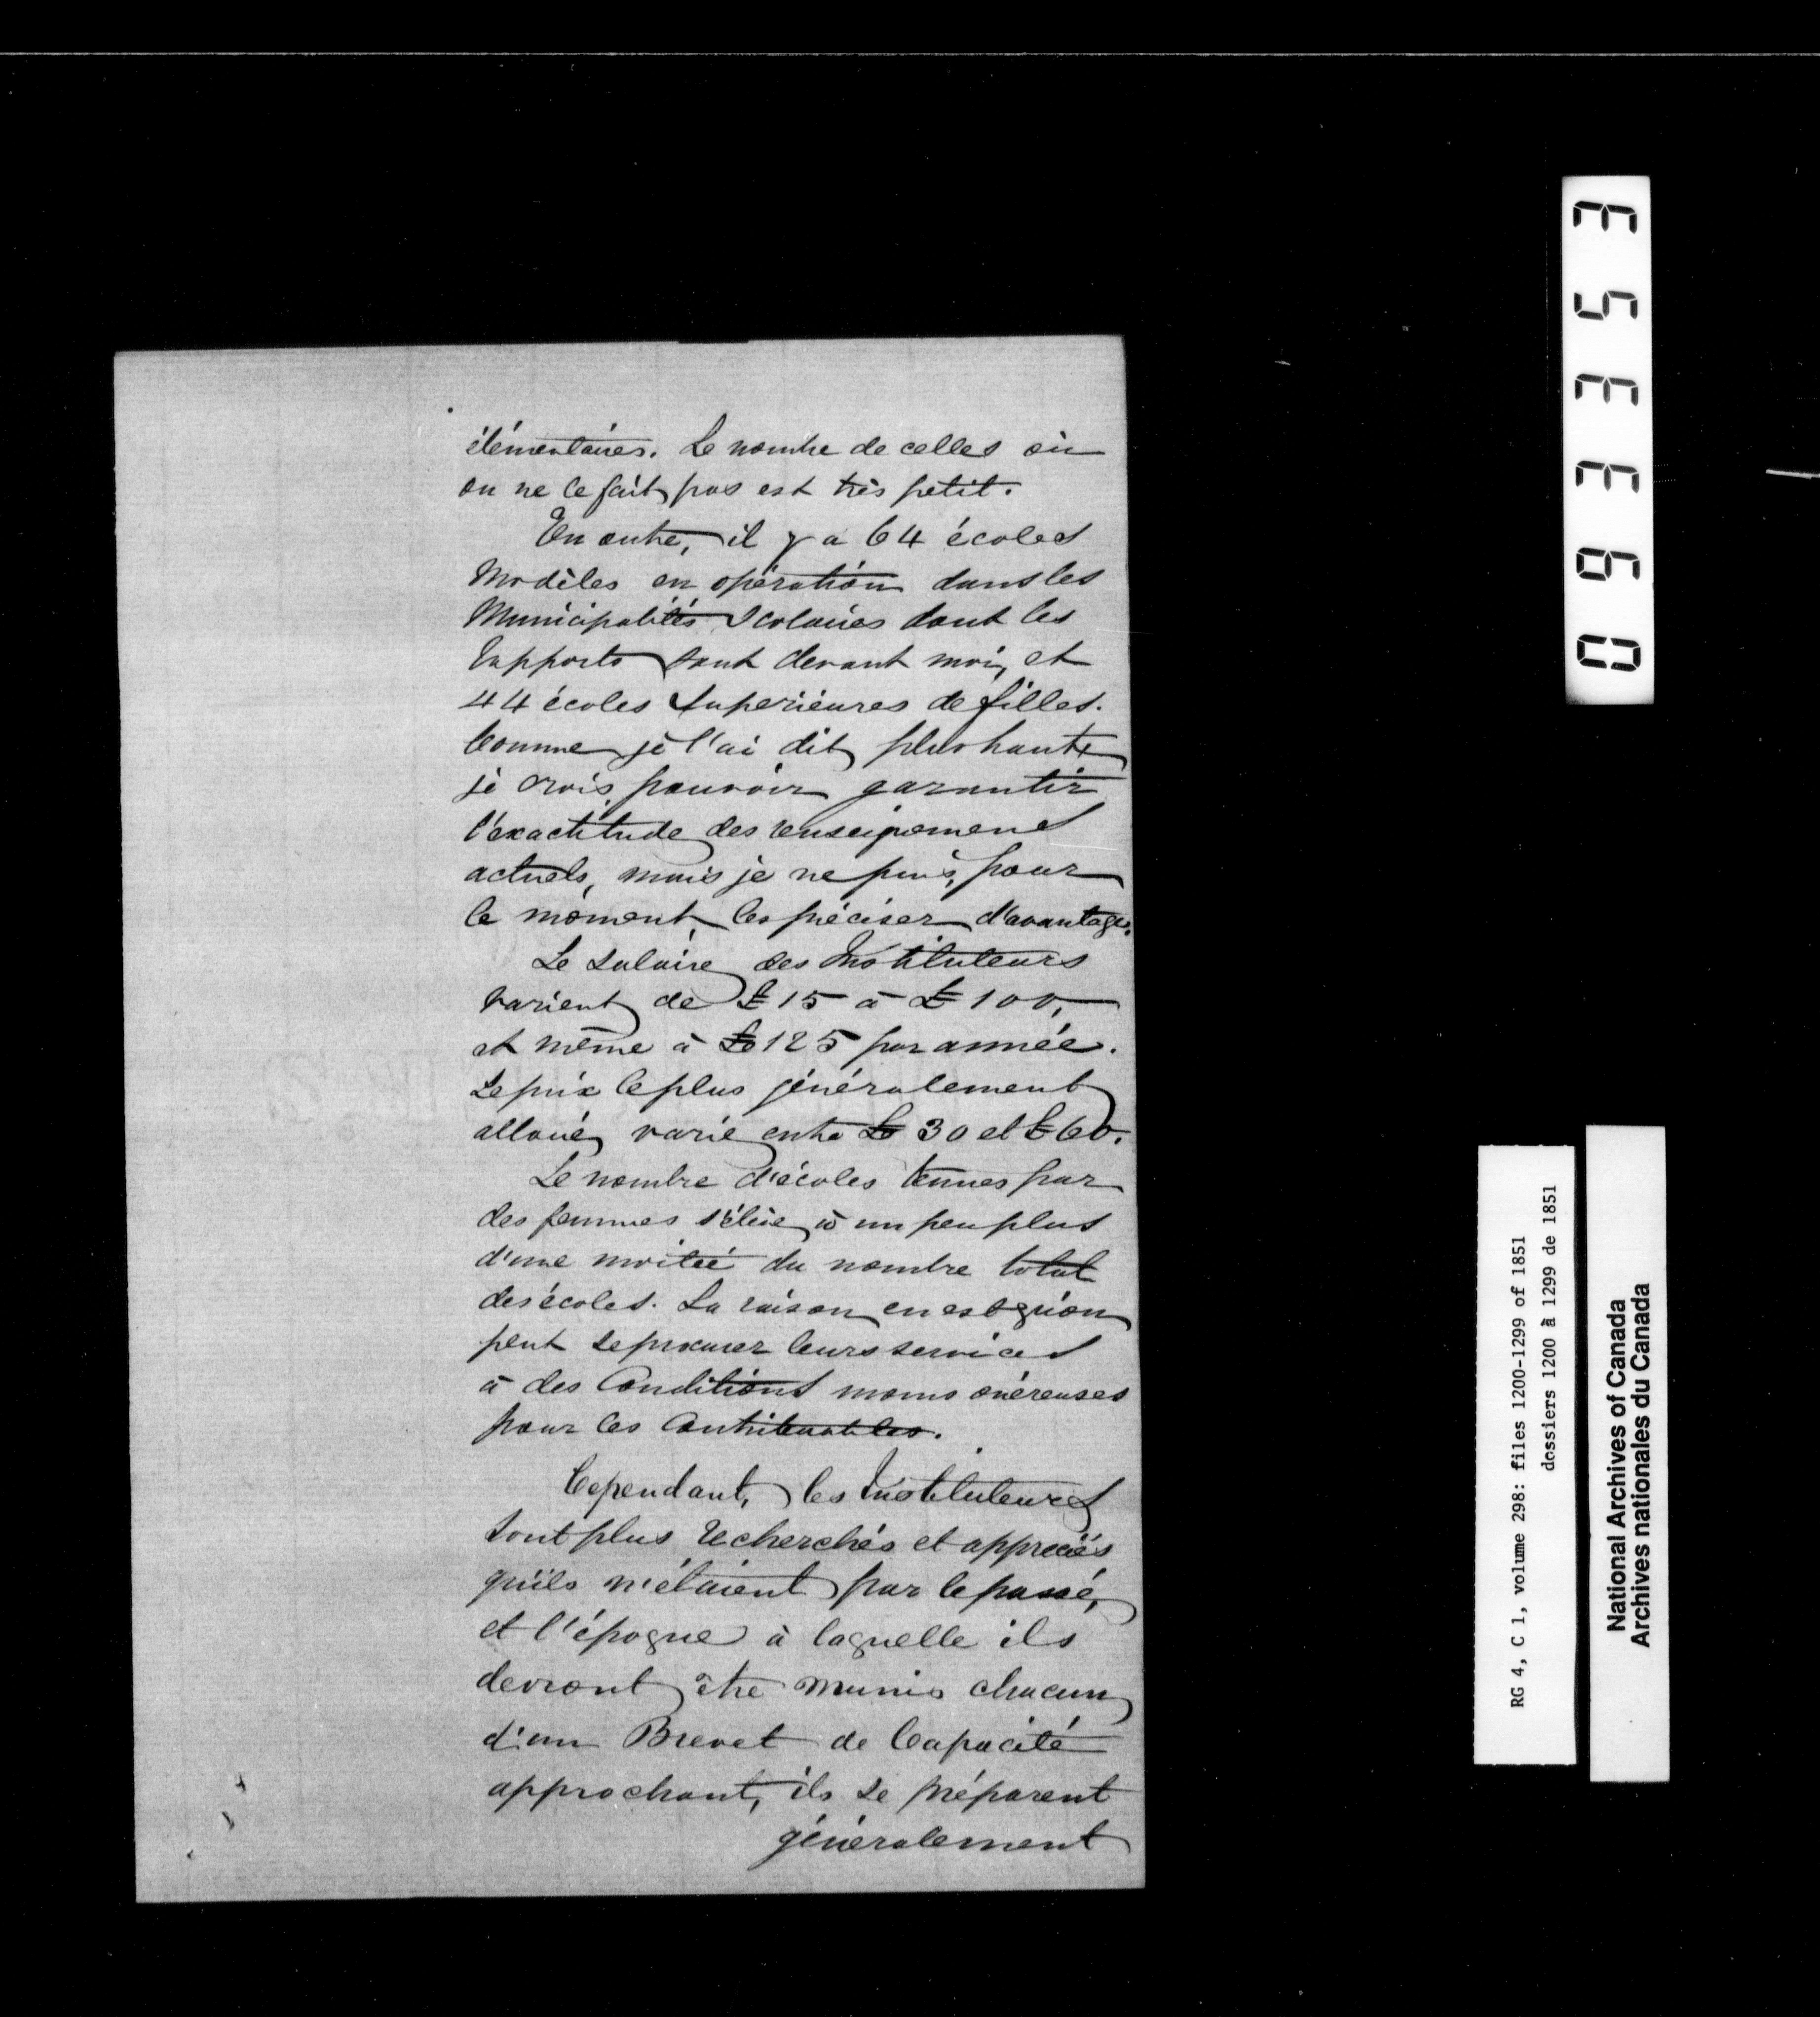 élémentaires. Le nombre de celles où
on ne le fait pas est très petit.
En outre, il y a 64 écoles
Modèles en opération dans les
Municipalités Scolaires dont les
rapports sont devant moi, et
44 écoles Supérieures de filles.
Comme je l'ai dit plus haut,
je crois pouvoir garantir
l'exactitude des renseignemens
actuels, mais je ne puis, pour
le moment, les préciser d'avantage.
Le salaire des Instituteurs
varient de £15 à £100,
et même à £125 par année.
Le prix le plus généralement
alloué, varie entre £30 et £60.
Le nombre d'écoles tenues par
des femmes s'élève à un peu plus
d'une moitié du nombre total
des écoles. La raison en est qu'on
peut se procurer leurs services
à des Conditions moins onéreuses
pour les Contribuables.
Cependant, les Instituteurs
sont plus recherchés et appreciés
qu'ils n'étaient par le passé,
et l'époque à laquelle ils
devront être munis chacun
d'un Brevet de Capacité
approchant, ils se préparent
généralement
093353
RG 4, C 1, volume 298: files 1200-1299 of 1851
dossiers 1200 à 1299 de 1851
National Archives of Canada
Archives nationales du Canada